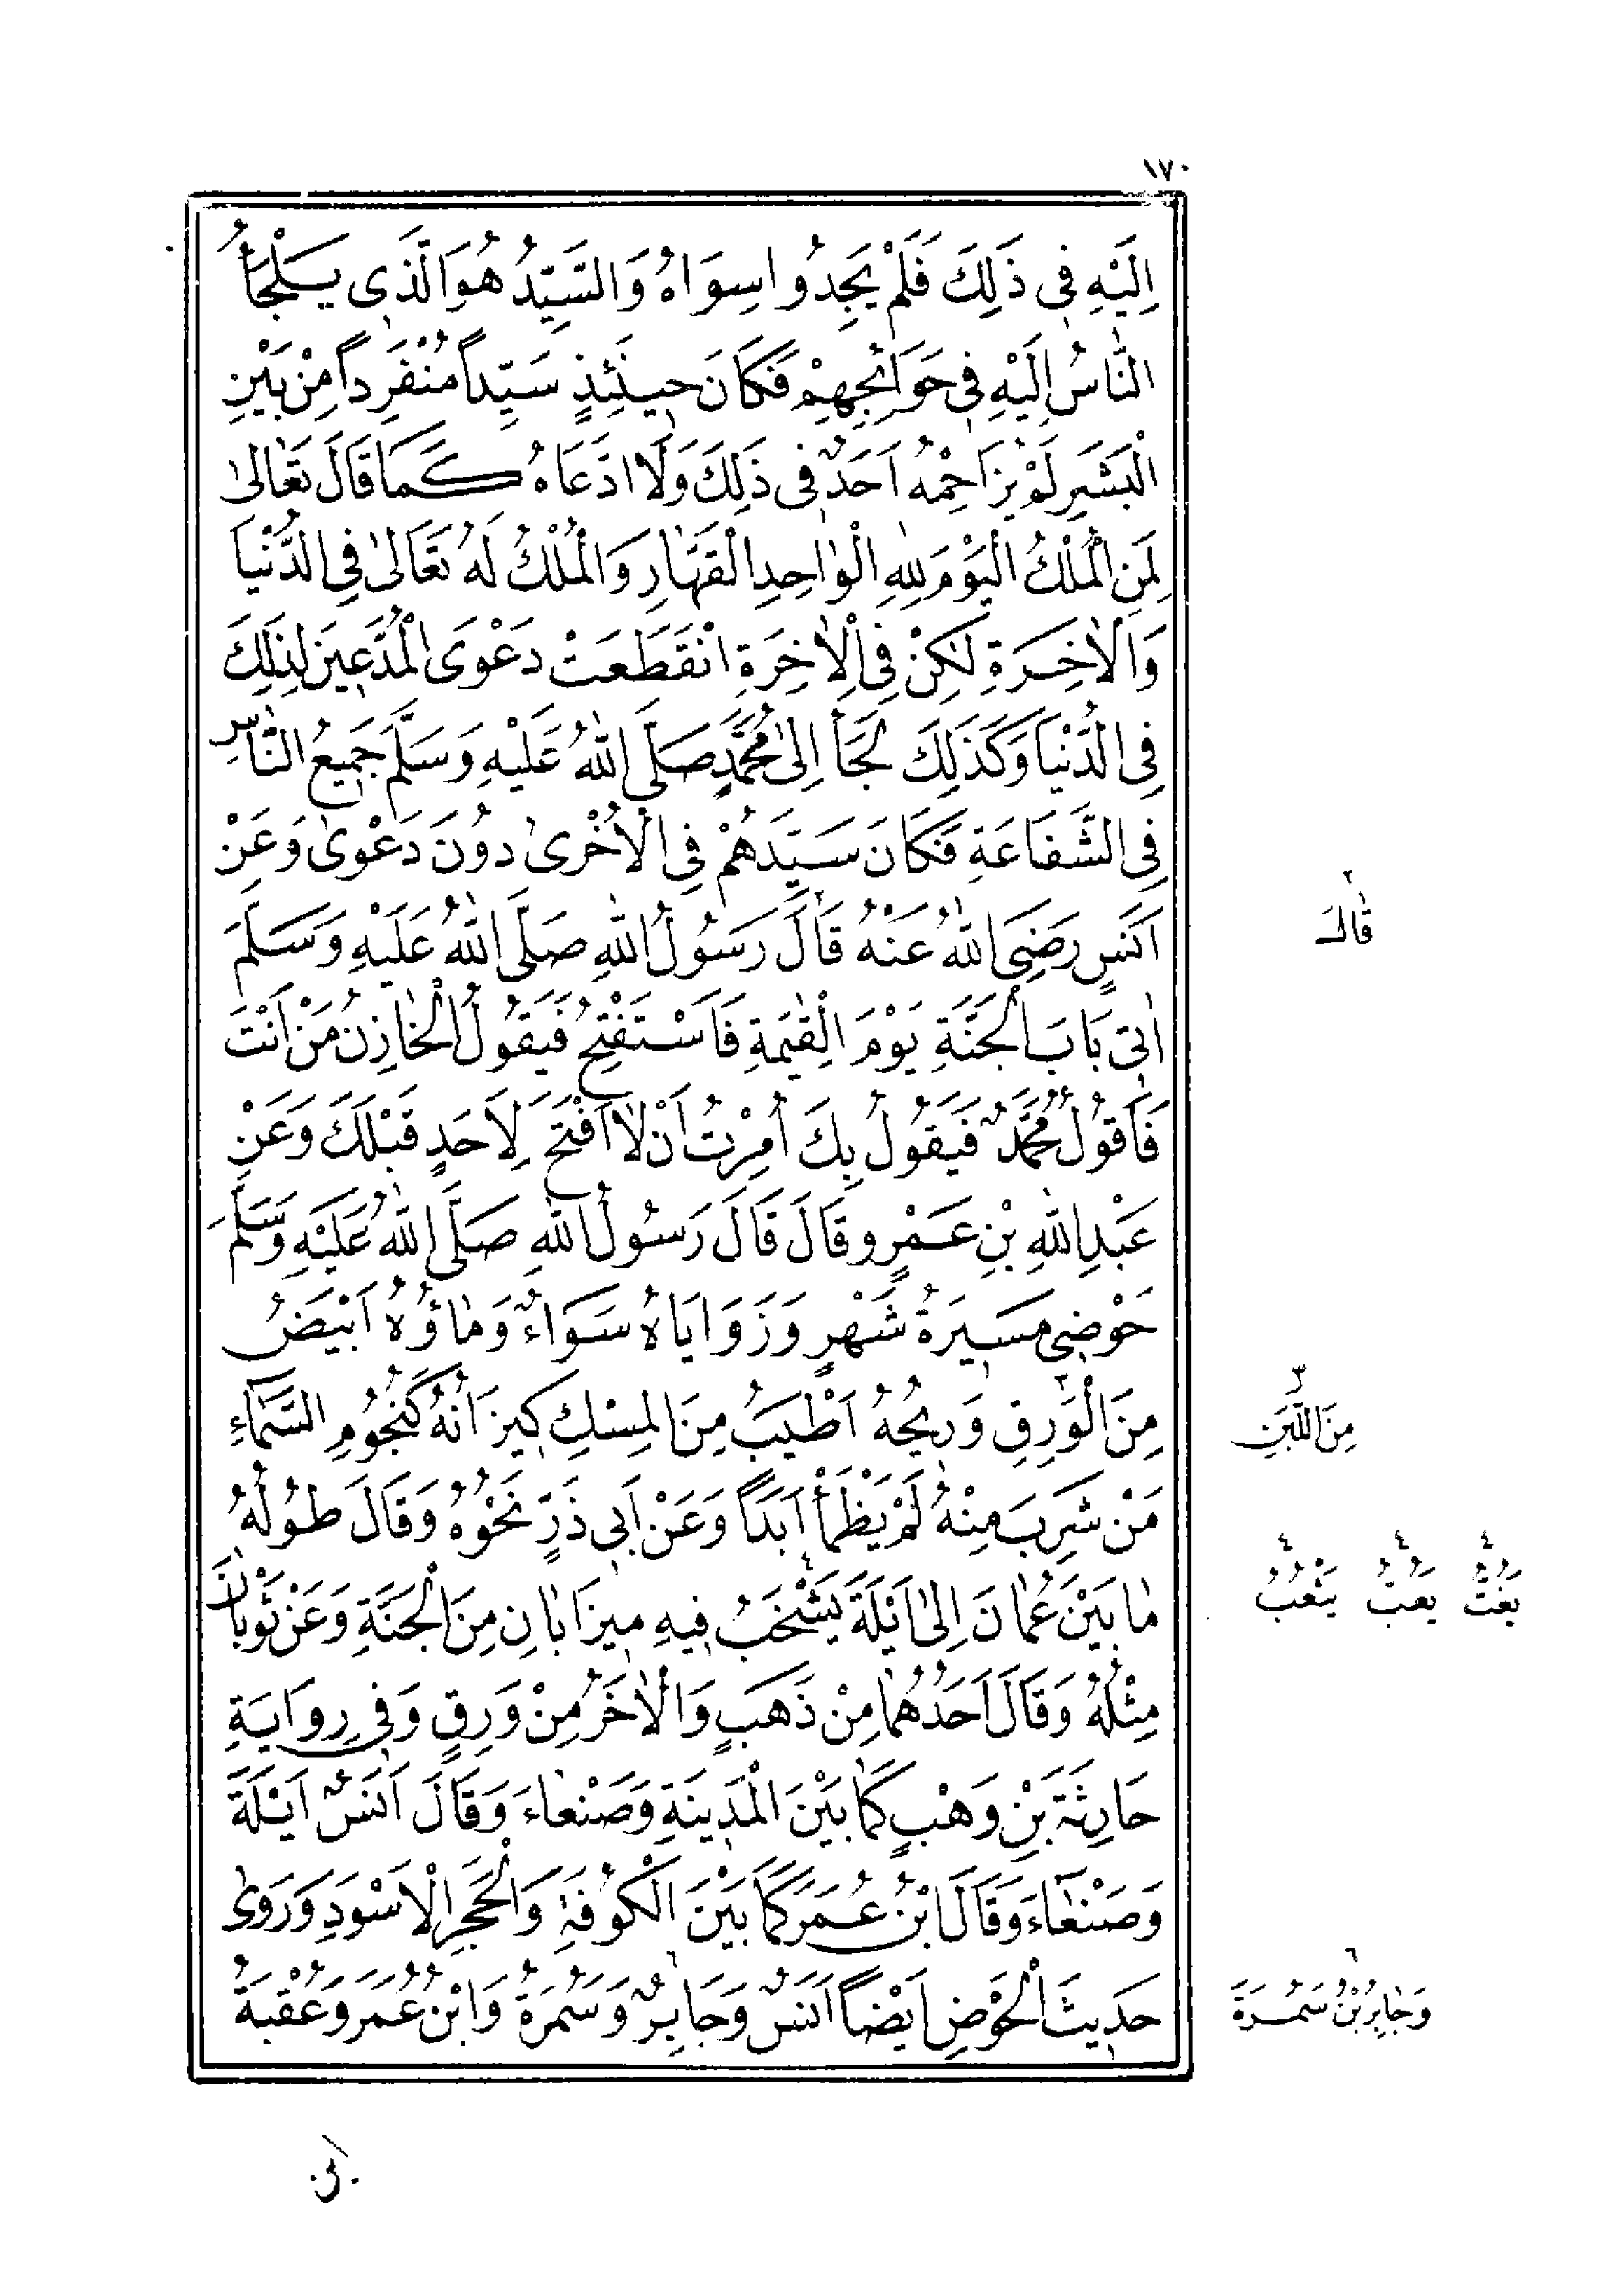 ١٧٠
اِلَيْهِ فِي ذَلِكَ فَلَمْ يَجِدُوا سِوَاهُ وَالسَّيِّدُ هُوَ الَّذِي يَلْجَأُ
النَّاسُ اِلَيْهِ فِي حَوَائِجِهِمْ فَكَانَ حِينَئِذٍ سَيِّدًا مُنْفَرِدًا مِنْ بَيْنِ
الْبَشَرِ لَمْ يُزَاحِمْهُ اَحَدٌ فِي ذَلِكَ وَلَا ادَّعَاهُ كَمَا قَالَ تَعَالٰى
لِمَنِ الْمُلْكُ الْيَوْمَ لِلّٰهِ الْوَاحِدِ الْقَهَّارِ وَالْمُلْكُ لَهُ تَعَالٰى فِي الدُّنْيَا
وَالْاٰخِرَةِ لٰكِنْ فِي الْاٰخِرَةِ انْقَطَعَتْ دَعْوَى الْمُدَّعِينَ لِذَلِكَ
فِي الدُّنْيَا وَكَذَلِكَ لَجَأَ اِلٰى مُحَمَّدٍ صَلَّى اللهُ عَلَيْهِ وَسَلَّمَ جَمِيعُ النَّاسِ
فِي الشَّفَاعَةِ فَكَانَ سَيِّدَهُمْ فِي الْاُخْرٰى دُونَ دَعْوٰى وَعَنْ
اَنَسٍ رَضِيَ اللهُ عَنْهُ قَالَ٢ رَسُولُ اللهِ صَلَّى اللهُ عَلَيْهِ وَسَلَّمَ
اٰتِي بَابَ الْجَنَّةِ يَوْمَ الْقِيٰمَةِ فَاَسْتَفْتِحُ فَيَقُولُ الْخَازِنُ مَنْ اَنْتَ
فَاَقُولُ مُحَمَّدٌ فَيَقُولُ بِكَ اُمِرْتُ اَنْ لَا اَفْتَحَ لِاَحَدٍ قَبْلَكَ وَعَنْ
عَبْدِ اللهِ بْنِ عَمْرٍو قَالَ قَالَ رَسُولُ اللهِ صَلَّى اللهُ عَلَيْهِ وَسَلَّمَ
حَوْضِي مَسِيرَةُ شَهْرٍ وَزَوَايَاهُ سَوَاءٌ وَمَاؤُهُ اَبْيَضُ
مِنَ الْوَرِقِ وَرِيحُهُ اَطْيَبُ مِنَ الْمِسْكِ كِيزَانُهُ كَنُجُومِ السَّمَاءِ
مَنْ شَرِبَ مِنْهُ لَمْ يَظْمَأْ اَبَدًا وَعَنْ اَبِي ذَرٍّ نَحْوُهُ وَقَالَ طُولُهُ
مَا بَيْنَ عُمَانَ اِلٰى اَيْلَةَ يَشْخَبُ٤ فِيهِ مِيزَابَانِ مِنَ الْجَنَّةِ وَعَنْ ثَوْبَانَ
مِثْلُهُ وَقَالَ اَحَدُهُمَا مِنْ ذَهَبٍ وَالْاٰخَرُ مِنْ وَرِقٍ وَفِي رِوَايَةِ
حَارِثَةَ بْنِ وَهْبٍ كَمَا بَيْنَ الْمَدِينَةِ وَصَنْعَاءَ وَقَالَ اَنَسٌ اَيْلَةَ
وَصَنْعَاءَ وَقَالَ ابْنُ عُمَرَ كَمَا بَيْنَ الْكُوفَةِ وَالْحَجَرِ الْاَسْوَدِ وَرَوٰى
حَدِيثَ الْحَوْضِ اَيْضًا اَنَسٌ وَجَابِرٌ٦ وَسَمُرَةُ وَابْنُ عُمَرَ وَعُقْبَةُ
٢
قَالَ
٣
مِنَ اللَّبَنِ
٤ ٤ ٤
يَغُتُّ يَعُبُّ يَثْعُبُ
٦
وَجَابِرُ بْنُ سَمُرَةَ